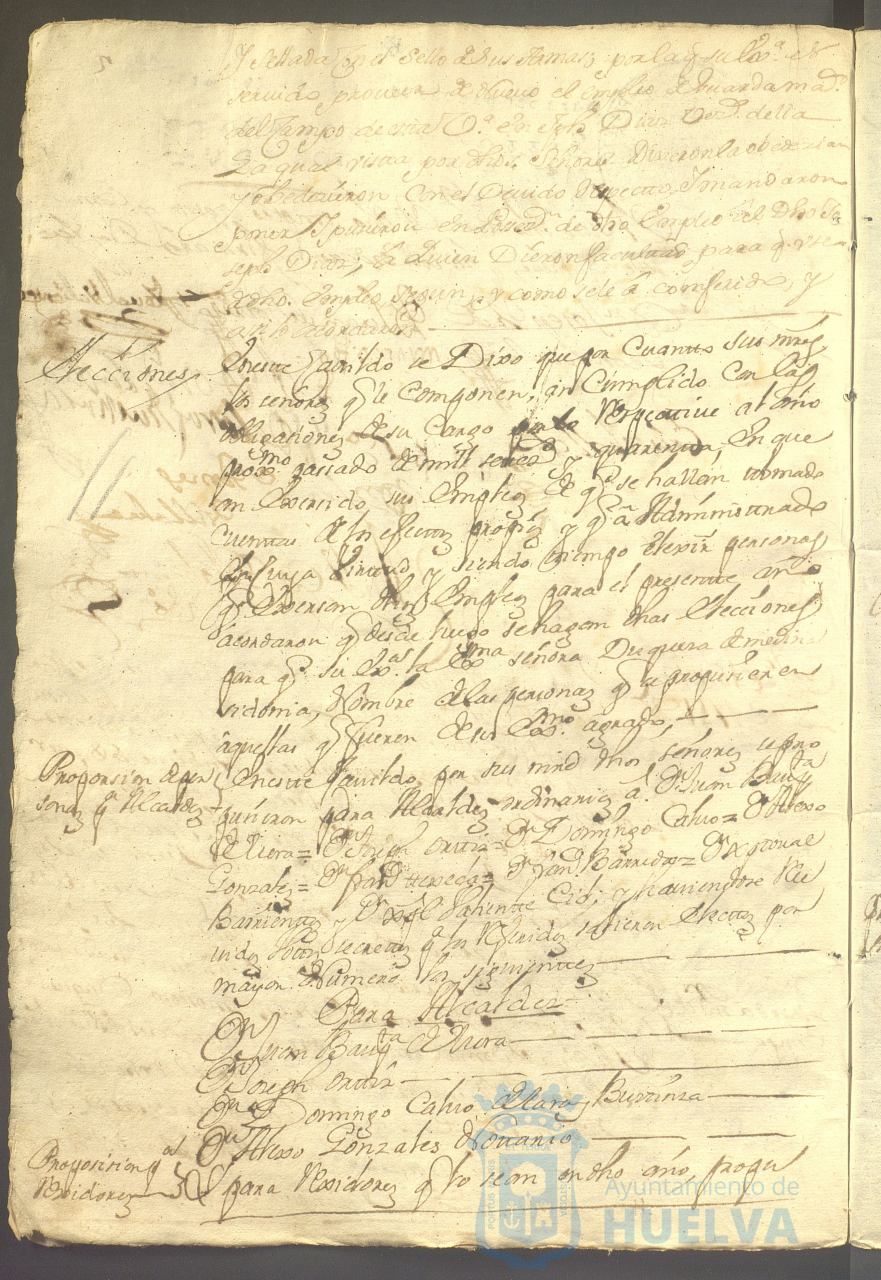 Y sellada Con el sello de sus Armas, por la q̃ su Exª. es
servido proveer de nuevo el empleo de Guarda maor.
del Campo de esta Vª. en Jph Diaz Vezº. della
La qual vista por dhos. señores Dixeron la obedezian
y obedezieron Con el Devido Respecto, y mandaron
poner y pusieron en Posecon. de dho Empleo al dho Jo
seph Diaz, a quien Dieron facultad para q̃ use
dho. Empleo segun, y como se le á conferido, y
asi lo acordaron
Elecciones
En este Cavildo se Dixo que por Cuanto sus mrds
los señores q̃ le componen, an Cumplido con las
obligaciones de su Cargo Respective al año
proxmo passado de mill setecos. y quarenta, en que
an Exersido sus Empleos de q̃ se hallan tomado
cuentas de los efectos propios y q̃ a Administrado
En cuya Virtud, y siendo tiempo elexir personas
q̃ Exersan dhos Empleos para el presente año
acordaron q̃ desde luego se hagan dhas Elecciones
para q̃ su Exª. la Exma señora Duquesa de medina
sidonia, Nombre de las personas q̃ se propusieren
aquellas q̃ fueren de su Exmo. agrado,
Proposicion de per
sonas pª Alcaldes
En este Cavildo por sus mrds dhos señores se pro
pusieron para Alcaldes ordinarios a Dn Juan Bauta
de Riera= Dn Joseph Ortiz= Dn Domingo Calvo= Dn Alexo
Gonzales= Dn Franco = Dn Franco Barredo= Dn Xptoval
Barrientos y Dn Valiente Cid; y haviendose Rec
vido votos secretos q̃ los Referidos salieron electos por
mayor Numero los siguientes
Para Alcaldes
Dn Juan Bauta de Riera
Dn Joseph Ortiz
Dn Domingo Calvo de Lara,
Dn Alexo Gonzales
Proposicion pª
Rexidores
para Rexidores q̃ lo sean en dho año, propu
Ayuntamiento de
HUELVA